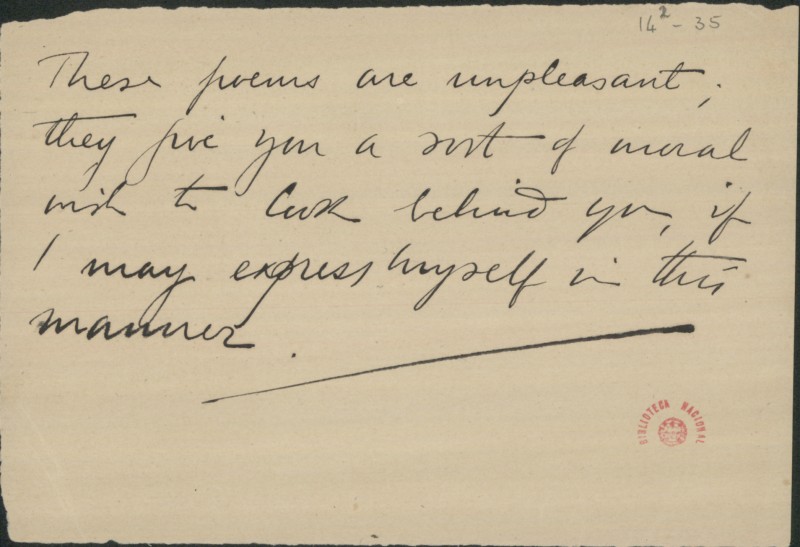 14² - 35
These poems are unpleasant;
they give you a sort of moral
wish to look behind you, if
I may express myself in this
manner.
BIBLIOTECA NACIONAL